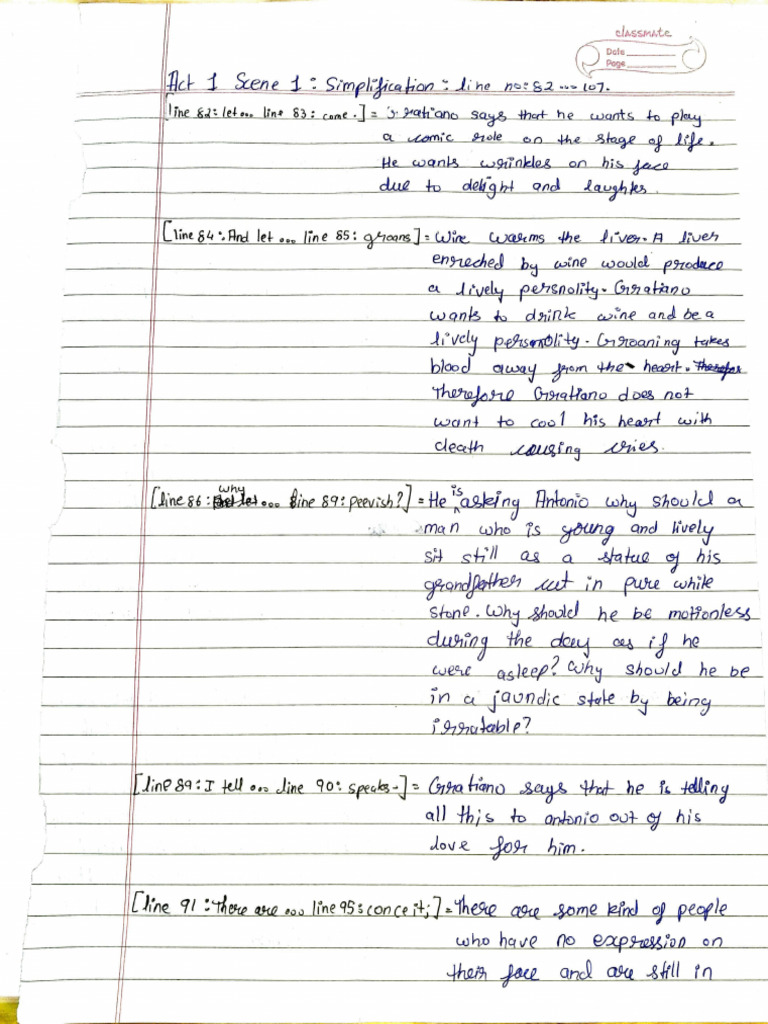 classmate
Date
Page
Act 1 Scene 1: Simplification: line no: 82 ... 107.
[line 82: let... line 83: come.] = Grratiano says that he wants to play
a comic role on the stage of life.
He wants wrinkles on his face
due to delight and laughter.
[line 84: And let ... line 85: groans] = Wine warms the liver. A liver
enreched by wine would produce
a lively persnolity. Grratiano
wants to drink wine and be a
lively persnolity. Grroaning takes
blood away from the heart. Therefor
Therefore Grratiano does not
want to cool his heart with
death causing cries.
[line 86: why ... line 89: peevish?] = He is asking Antonio why should a
man who is young and lively
sit still as a statue of his
grandfather cut in pure while
stone. Why should he be motionless
during the day as if he
were asleep? Why should he be
in a jaundic state by being
irratable?
[line 89: I tell ... line 90: speaks-] = Grratiano says that he is telling
all this to antonio out of his
love for him.
[line 91: There are ... line 95: conceit;] = There are some kind of people
who have no expression on
their face and are still in